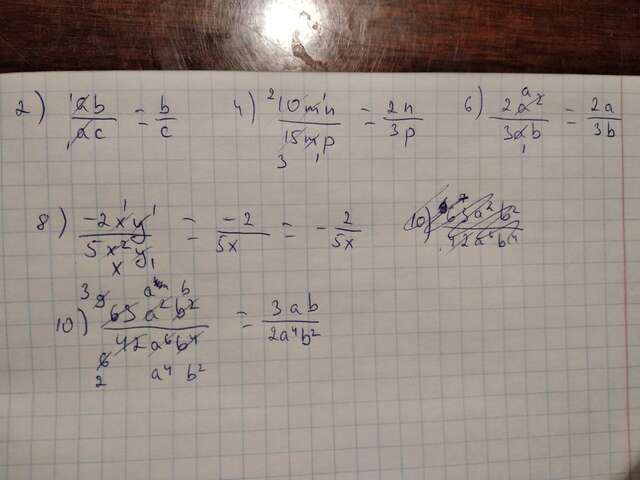 2) ab/ac = b/c 4) 10mn/15mp = 2n/3p 6) 2a²/3ab = 2a/3b
8) -2xy/5x²y = -2/5x = -2/5x 10) 63a²b²/42a⁶b⁴
10) 63a²b²/42a⁶b⁴ = 3ab/2a⁴b²